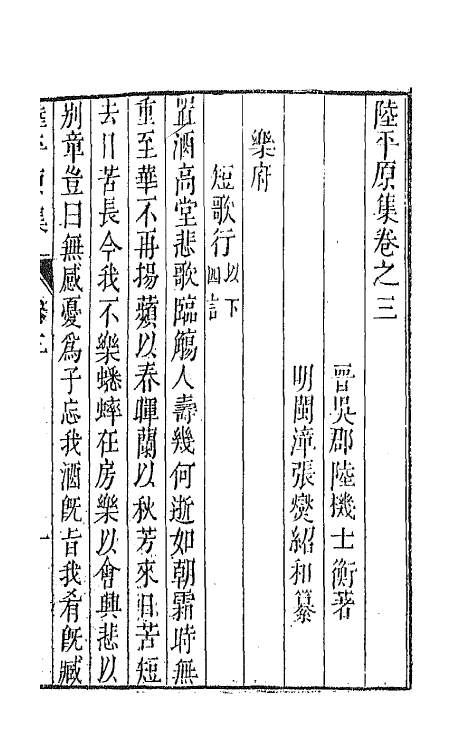 陸平原集卷之三
晉吳郡陸機士衡著
明閩漳張燮紹和纂
樂府
短歌行以下四言
置酒高堂悲歌臨觴人壽幾何逝如朝霜時無
重至華不再揚蘋以春暉蘭以秋芳來日苦短
去日苦長今我不樂蟋蟀在房樂以會興悲以
別章豈曰無感憂爲子忘我酒旣旨我肴旣臧